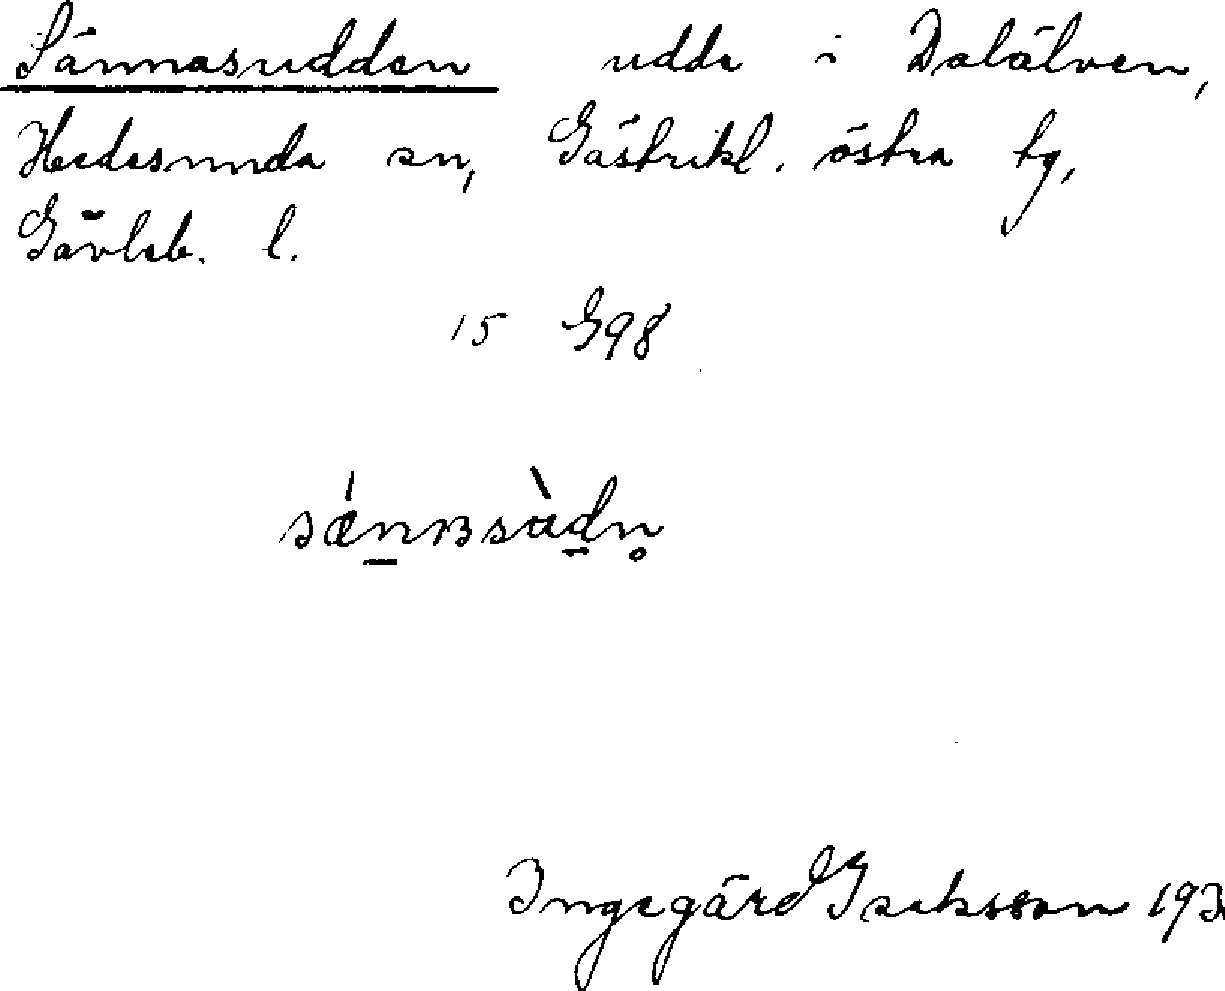 Sännasudden udde i Dalälven,
Hedesunda sn, Gästrikl. östra tg,
Gävleb. l.
15 G98
sǽnʙsὰdn̥
Ingegärd Isaksson 193